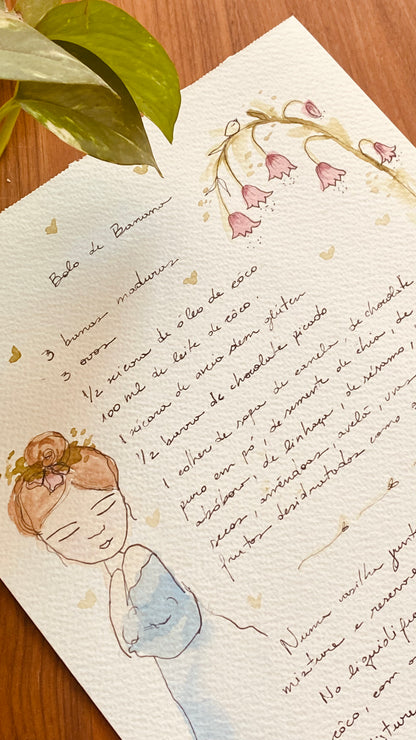 Bolo de Banana
3 banas maduras
3 ovos
1/2 xícara de óleo de côco
100 ml de leite de côco.
1 xícara de aveia sem glúten
1/2 barra de chocolate picado
1 colher de sopa de canela, de chocolate
puro em pó, de semente de chia, de
abóbora, de linhaça, de sésamo,
secos, amêndoas, avelã, uva
frutos desidratados como a
Numa vasilha junt
misture e reserve
No liquidifi
côco, com o